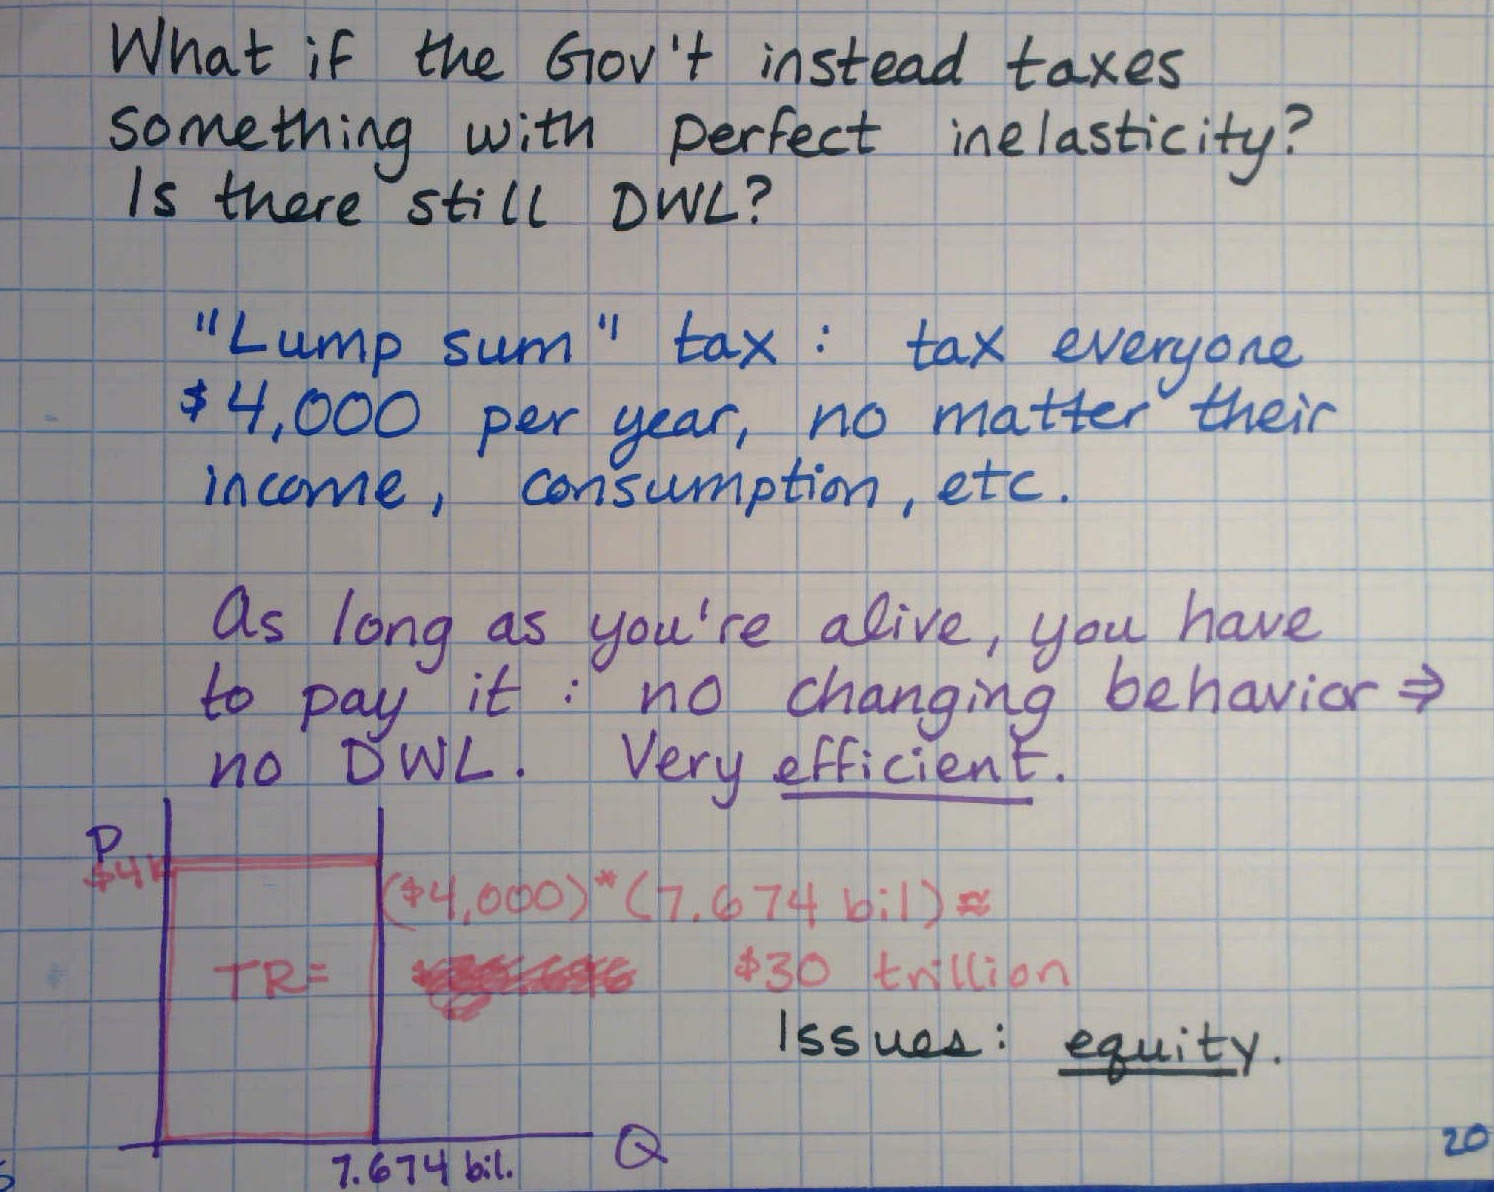 What if the Gov't instead taxes
something with perfect inelasticity?
Is there still DWL?
"Lump sum" tax : tax everyone
$4,000 per year, no matter their
income, consumption, etc.
As long as you're alive, you have
to pay it : no changing behavior ⇒
no DWL. Very efficient.
P
$4K
($4,000)*(7.674 bil) ≈
TR=
$30 trillion
Issues: equity.
7.674 bil.
Q
20